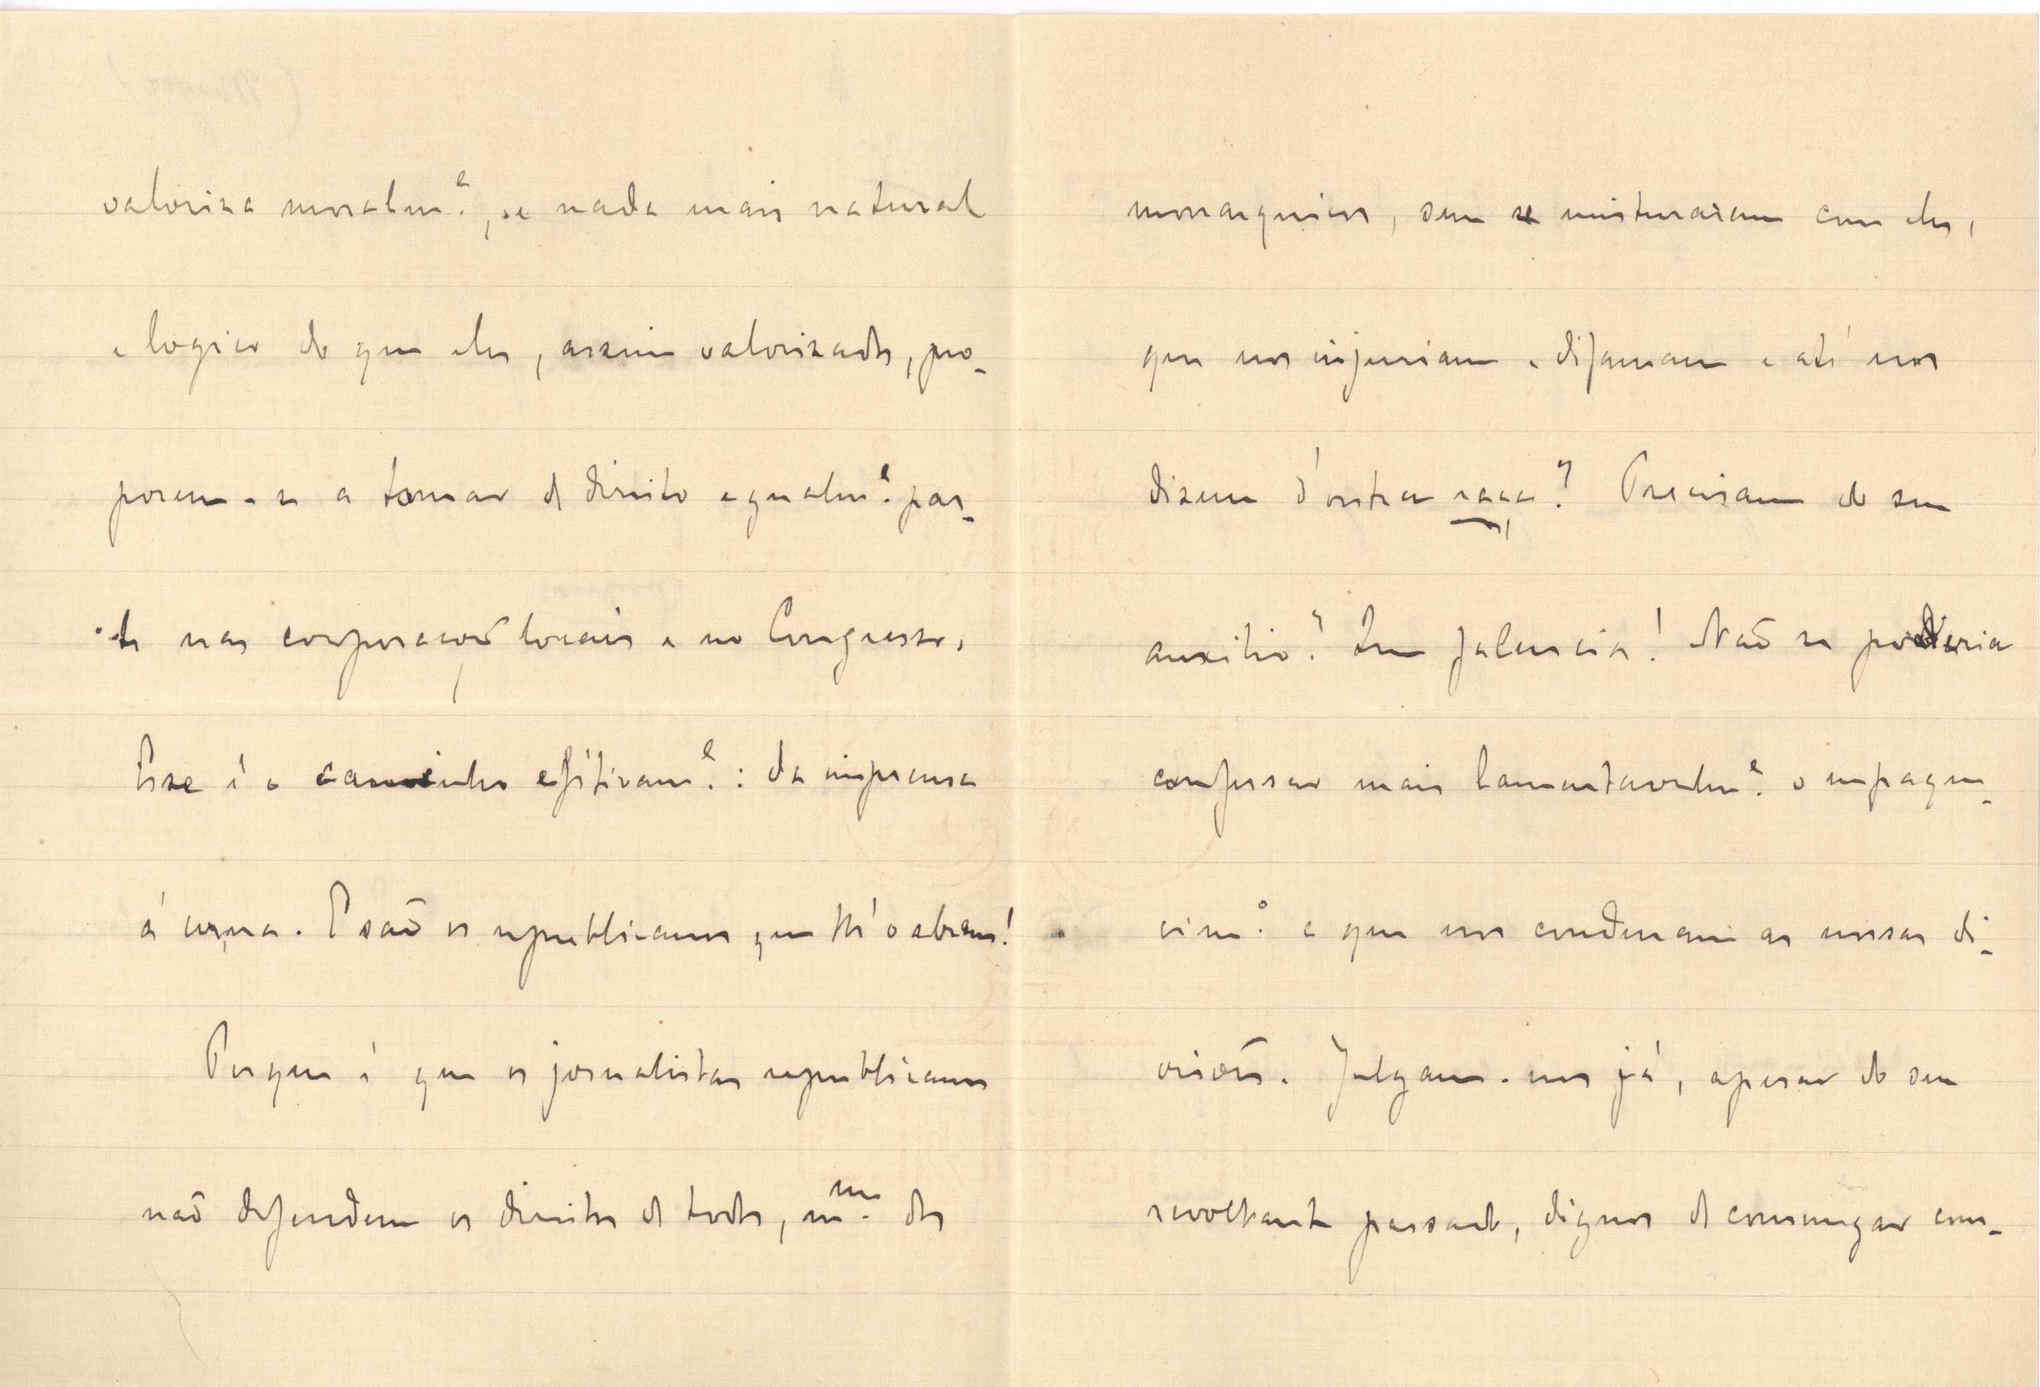 valorisa moralm.e, e nada mais natural
e logico do que eles, assim valorisados, pro-
porem-se a tomar de direito egualm.e par-
te nas corporações locais e no Congresso.
Esse é o caminho efétivam.e: da imprensa
á urna. E são os republicanos que lh'o abrem!
Porque é que os jornalistas republicanos
não defendem os direitos de todos, m.mo dos
monarquicos, sem se misturarem com eles,
que nos injuriam e difamam e até nos
dizem d'outra raça? Precisam do seu
auxilio? Que falencia! Não se poderia
confessar mais lamentavelm.e o enfraque-
cim.o a que nos condenam as nossas di-
visões. Julgam-nos já, apesar do seu
revoltante passado, dignos de comungar com-